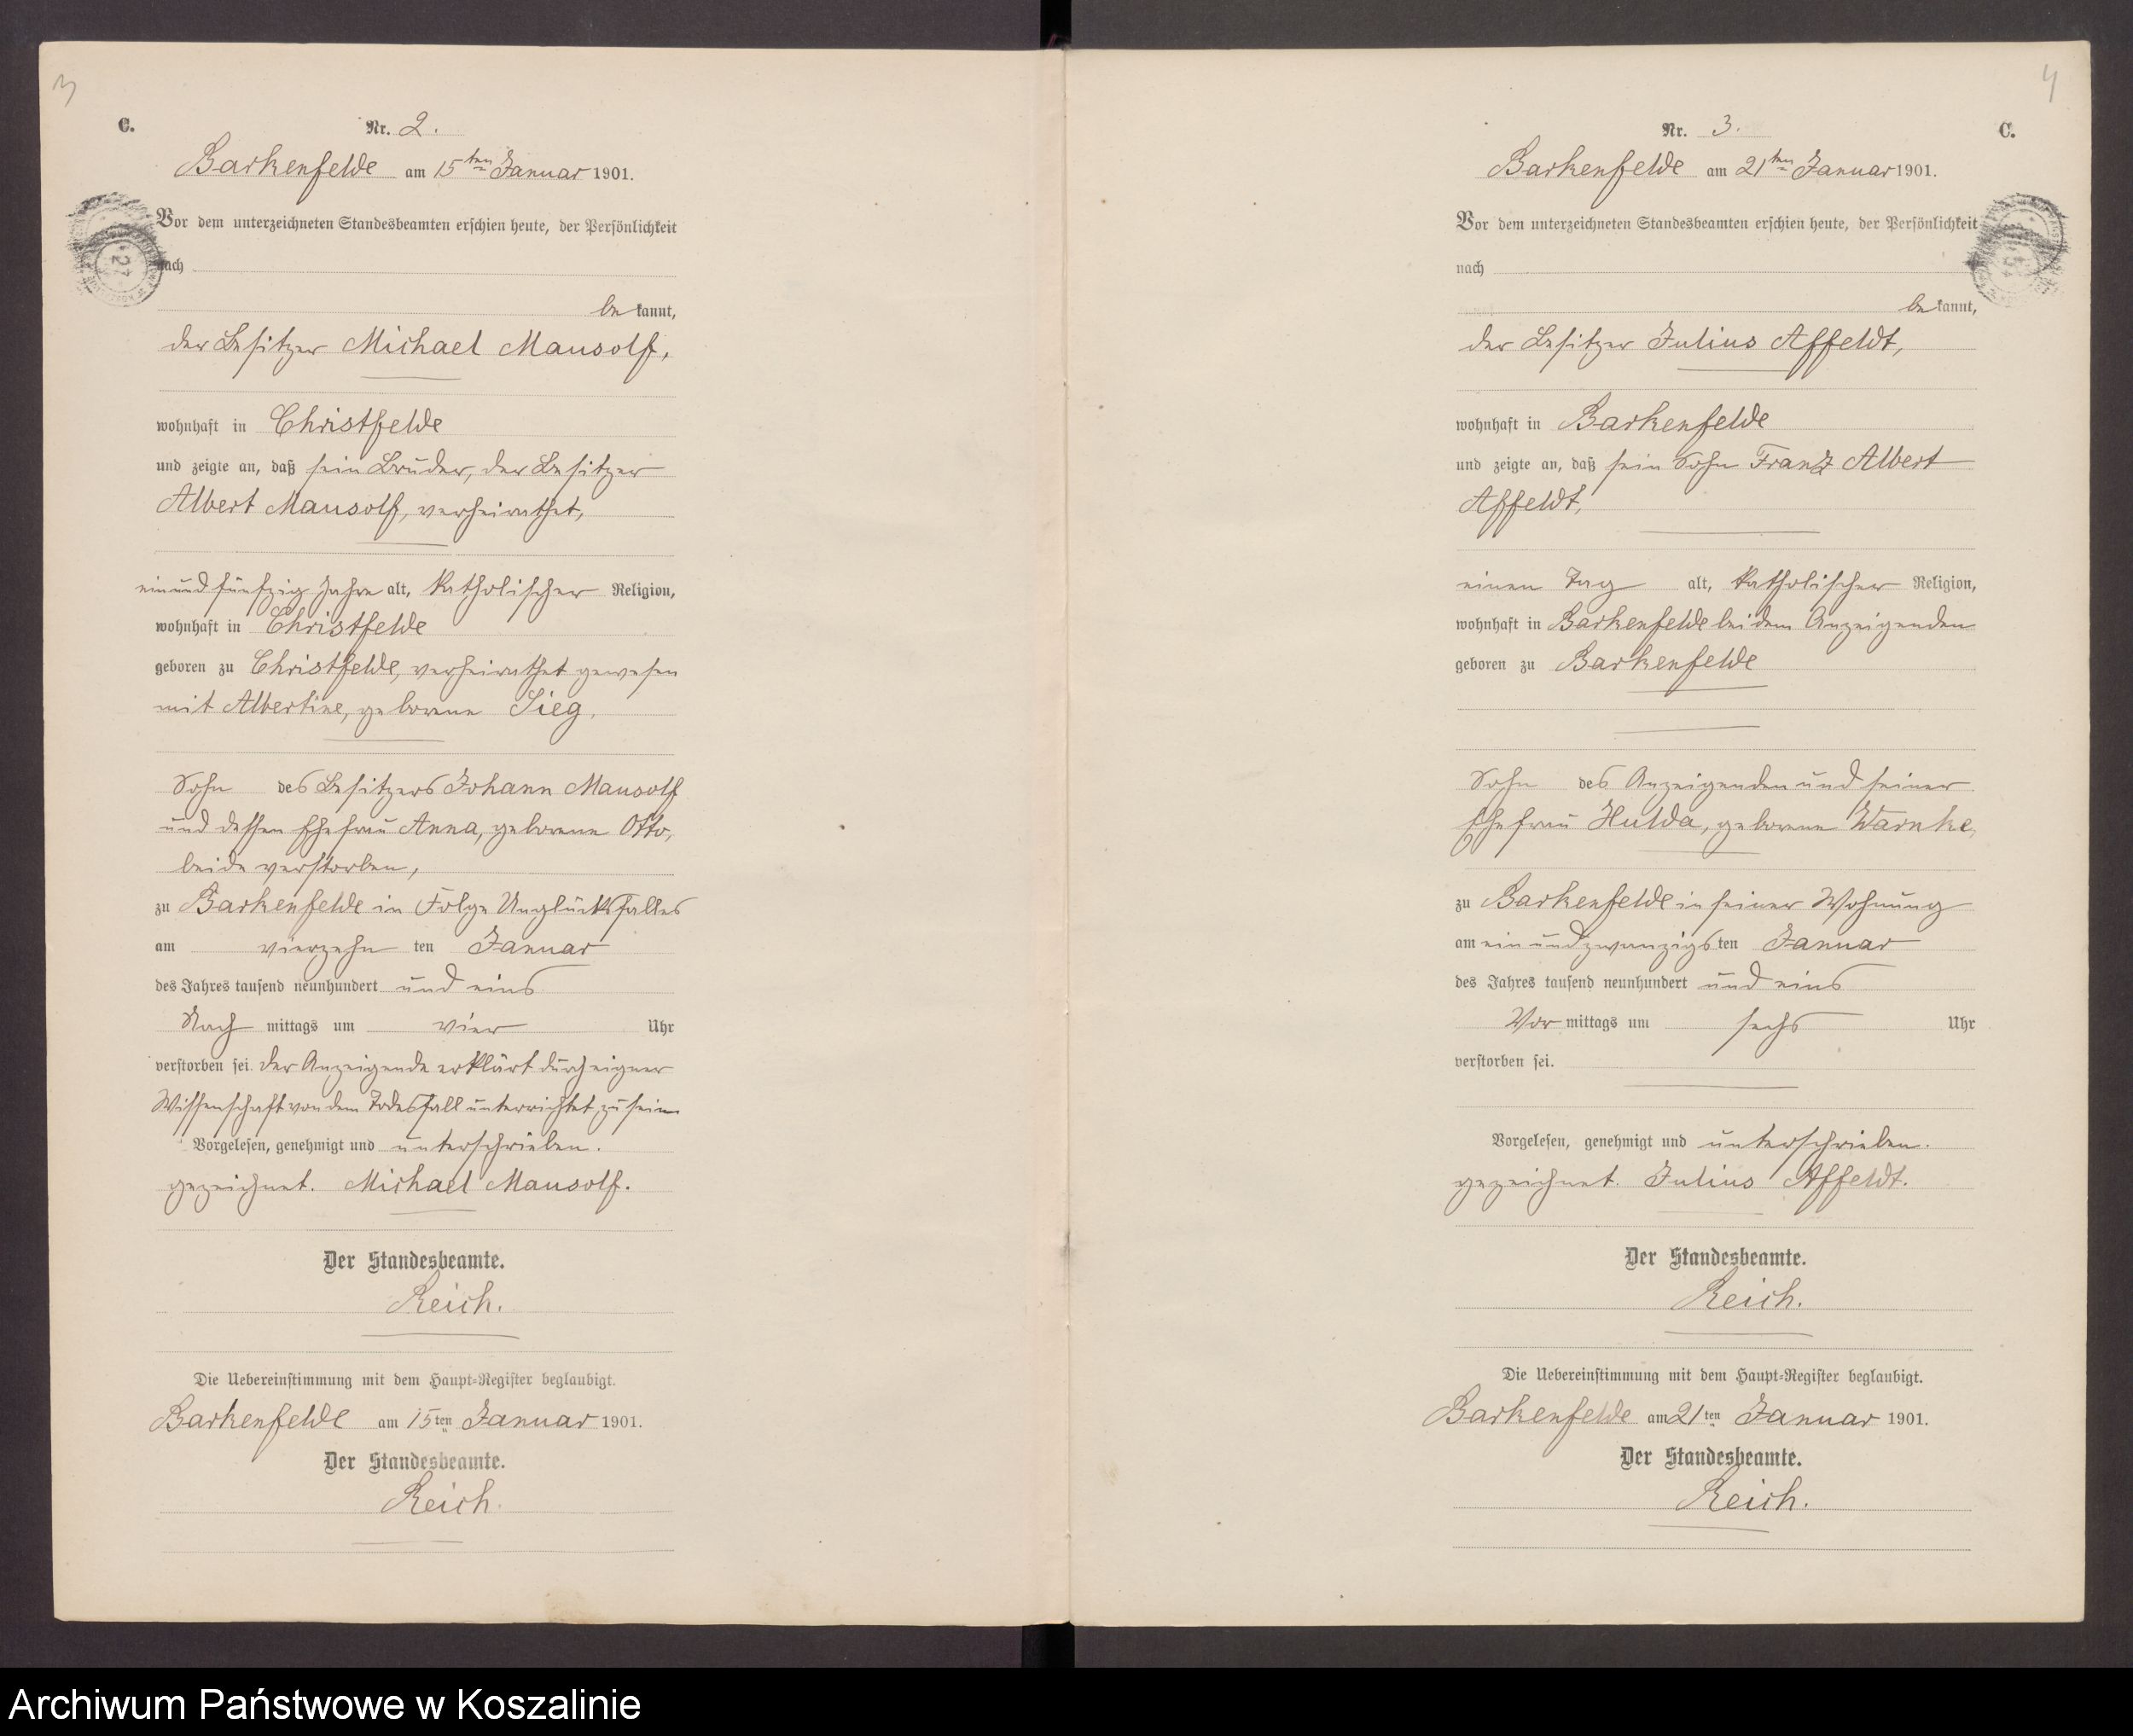 3
C.
Nr. 2.
Barkenfelde am 15ten Januar 1901.
Vor dem unterzeichneten Standesbeamten erschien heute, der Persönlichkeit
nach
bekannt,
der Besitzer Michael Mausolf,
wohnhaft in Christfelde
und zeigte an, daß sein Bruder, der Besitzer
Albert Mausolf, verheirathet,
einundfünfzig Jahre alt, katholischer Religion,
wohnhaft in Christfelde
geboren zu Christfelde, verheirathet gewesen
mit Albertine, geborene Sieg.
Sohn des Besitzers Johann Mausolf
und dessen Ehefrau Anna, geborene Otto,
beide verstorben,
zu Barkenfelde in Folge Unglücksfalles
am vierzehnten Januar
des Jahres tausend neunhundert und eins
Nachmittags um vier Uhr
verstorben sei. Der Anzeigende erklärt durch eigner
Wissenschaft von dem Todesfall unterrichtet zu sein
Vorgelesen, genehmigt und unterschrieben.
gezeichnet. Michael Mausolf.
Der Standesbeamte.
Reich.
Die Uebereinstimmung mit dem Haupt-Register beglaubigt.
Barkenfelde am 15ten Januar 1901.
Der Standesbeamte.
Reich.
4
Nr. 3.
C.
Barkenfelde am 21ten Januar 1901.
Vor dem unterzeichneten Standesbeamten erschien heute, der Persönlichkeit
nach
bekannt,
der Besitzer Julius Affeldt,
wohnhaft in Barkenfelde
und zeigte an, daß sein Sohn Franz Albert
Affeldt,
einen Tag alt, katholischer Religion,
wohnhaft in Barkenfelde bei dem Anzeigenden
geboren zu Barkenfelde
Sohn des Anzeigenden und seiner
Ehefrau Hulda, geborene Warnke,
zu Barkenfelde in seiner Wohnung
am einundzwanzigsten Januar
des Jahres tausend neunhundert und eins
Vormittags um sechs Uhr
verstorben sei.
Vorgelesen, genehmigt und unterschrieben.
gezeichnet. Julius Affeldt.
Der Standesbeamte.
Reich.
Die Uebereinstimmung mit dem Haupt-Register beglaubigt.
Barkenfelde am 21ten Januar 1901.
Der Standesbeamte.
Reich.
Archiwum Państwowe w Koszalinie